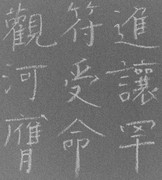 進讓罕
符受命
觀河膺